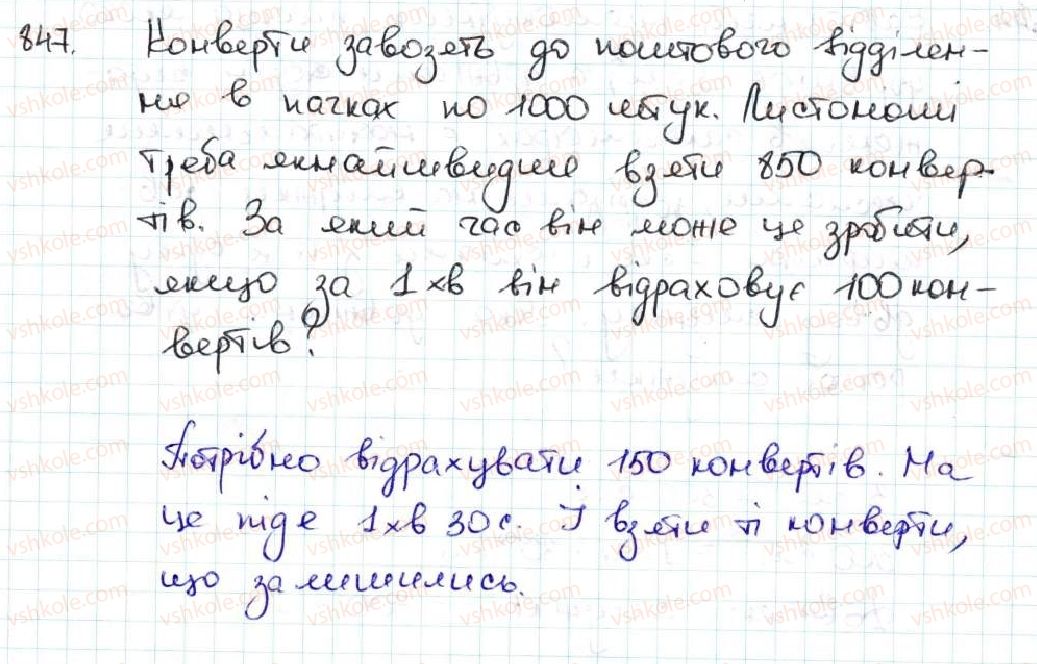 847. Конверти завозять до поштового відділен-
ня в пачках по 1000 штук. Листоноші
треба якнайшвидше взяти 850 конвер-
тів. За який час він може це зробити,
якщо за 1 хв він відраховує 100 кон-
вертів?
Потрібно відрахувати 150 конвертів. На
це піде 1 хв 30 с. І взяти ті конверти,
що залишились.